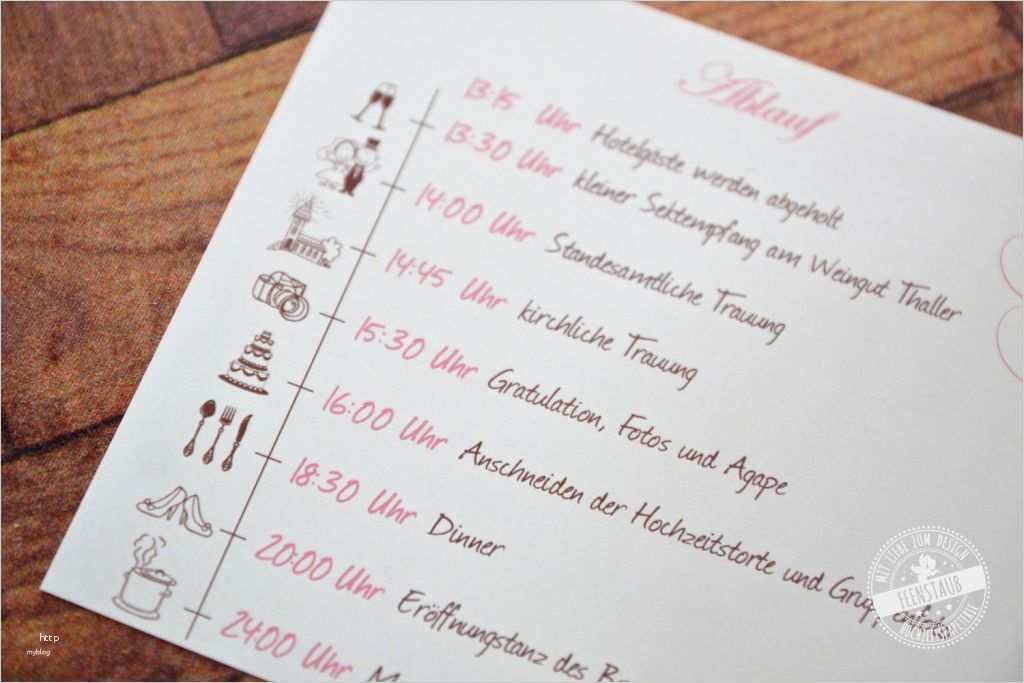 Ablauf
13:15 Uhr Hotelgäste werden abgeholt
13:30 Uhr kleiner Sektempfang am Weingut Thaller
14:00 Uhr Standesamtliche Trauung
14:45 Uhr kirchliche Trauung
15:30 Uhr Gratulation, Fotos und Agape
16:00 Uhr Anschneiden der Hochzeitstorte und
18:30 Uhr Dinner
20:00 Uhr Eröffnungstanz des
24:00 Uhr
MIT LIEBE ZUM DESIGN
FEENSTAUB
HOCHZEITSPAPETERIE
http
myblog